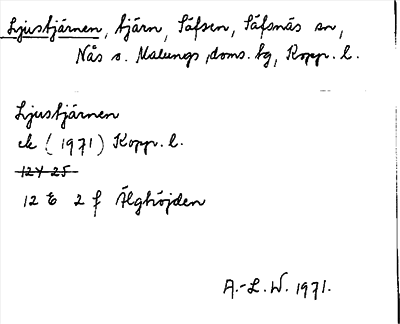 Ljustjärnen, tjärn, Säfsen, Säfsnäs sn,
Nås o. Malungs doms. tg, Kopp. l.
Ljustjärnen
ek (1971) Kopp. l.
12 E 2 f Älghöjden
A.-L. W. 1971.